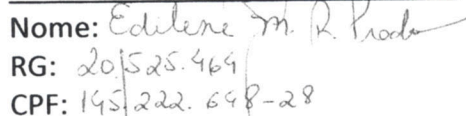 Nome: Edilene M. R. Prado
RG: 20.525.464
CPF: 145.222.648-28